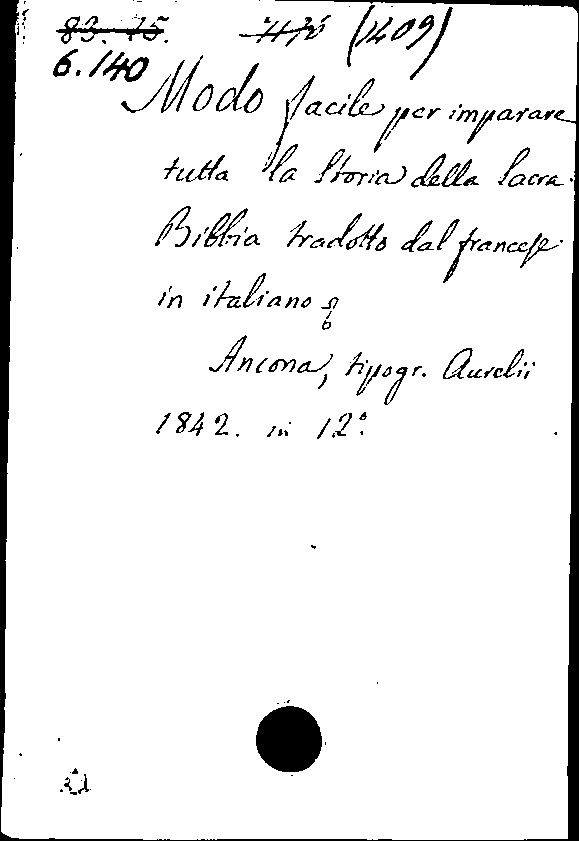 83. 15. (1409)
6.140
Modo facile per imparare
tutta la Storia della Sacra
Bibbia tradotto dal francese
in italiano
Ancona, tipogr. Aurelii
1842. in 12.°